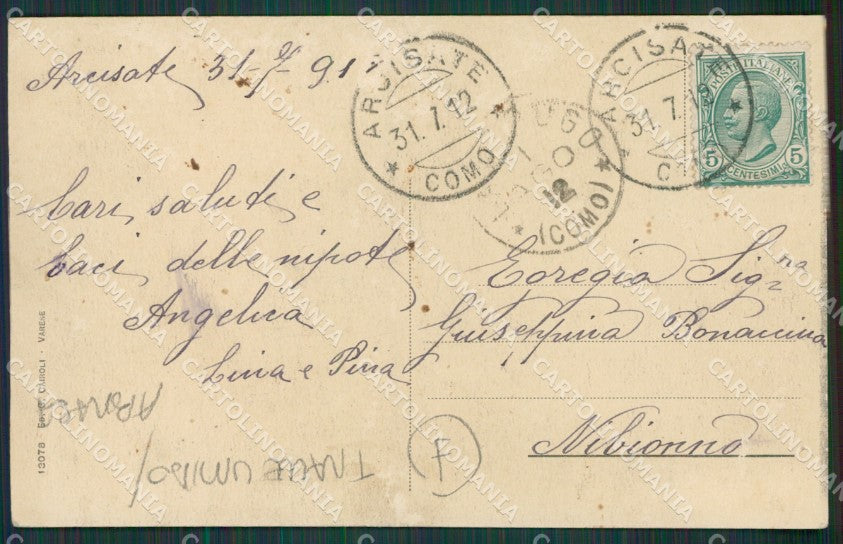 Arcisate 31-7-912
ARCISATE
31.7.12
COMO
ARCISATE
31.7.12
LUGO
AGO
12
(COMO)
POSTE ITALIANE
5 5
CENTESIMI
Cari saluti e
baci delle nipoti
Angelica
Lina e Pina
Egregia Signa
Giuseppina Bonaccina
Nibionno
13078 CAIROLI - VARESE
TRACCE UMIDO/
F
CARTOLINOMANIA